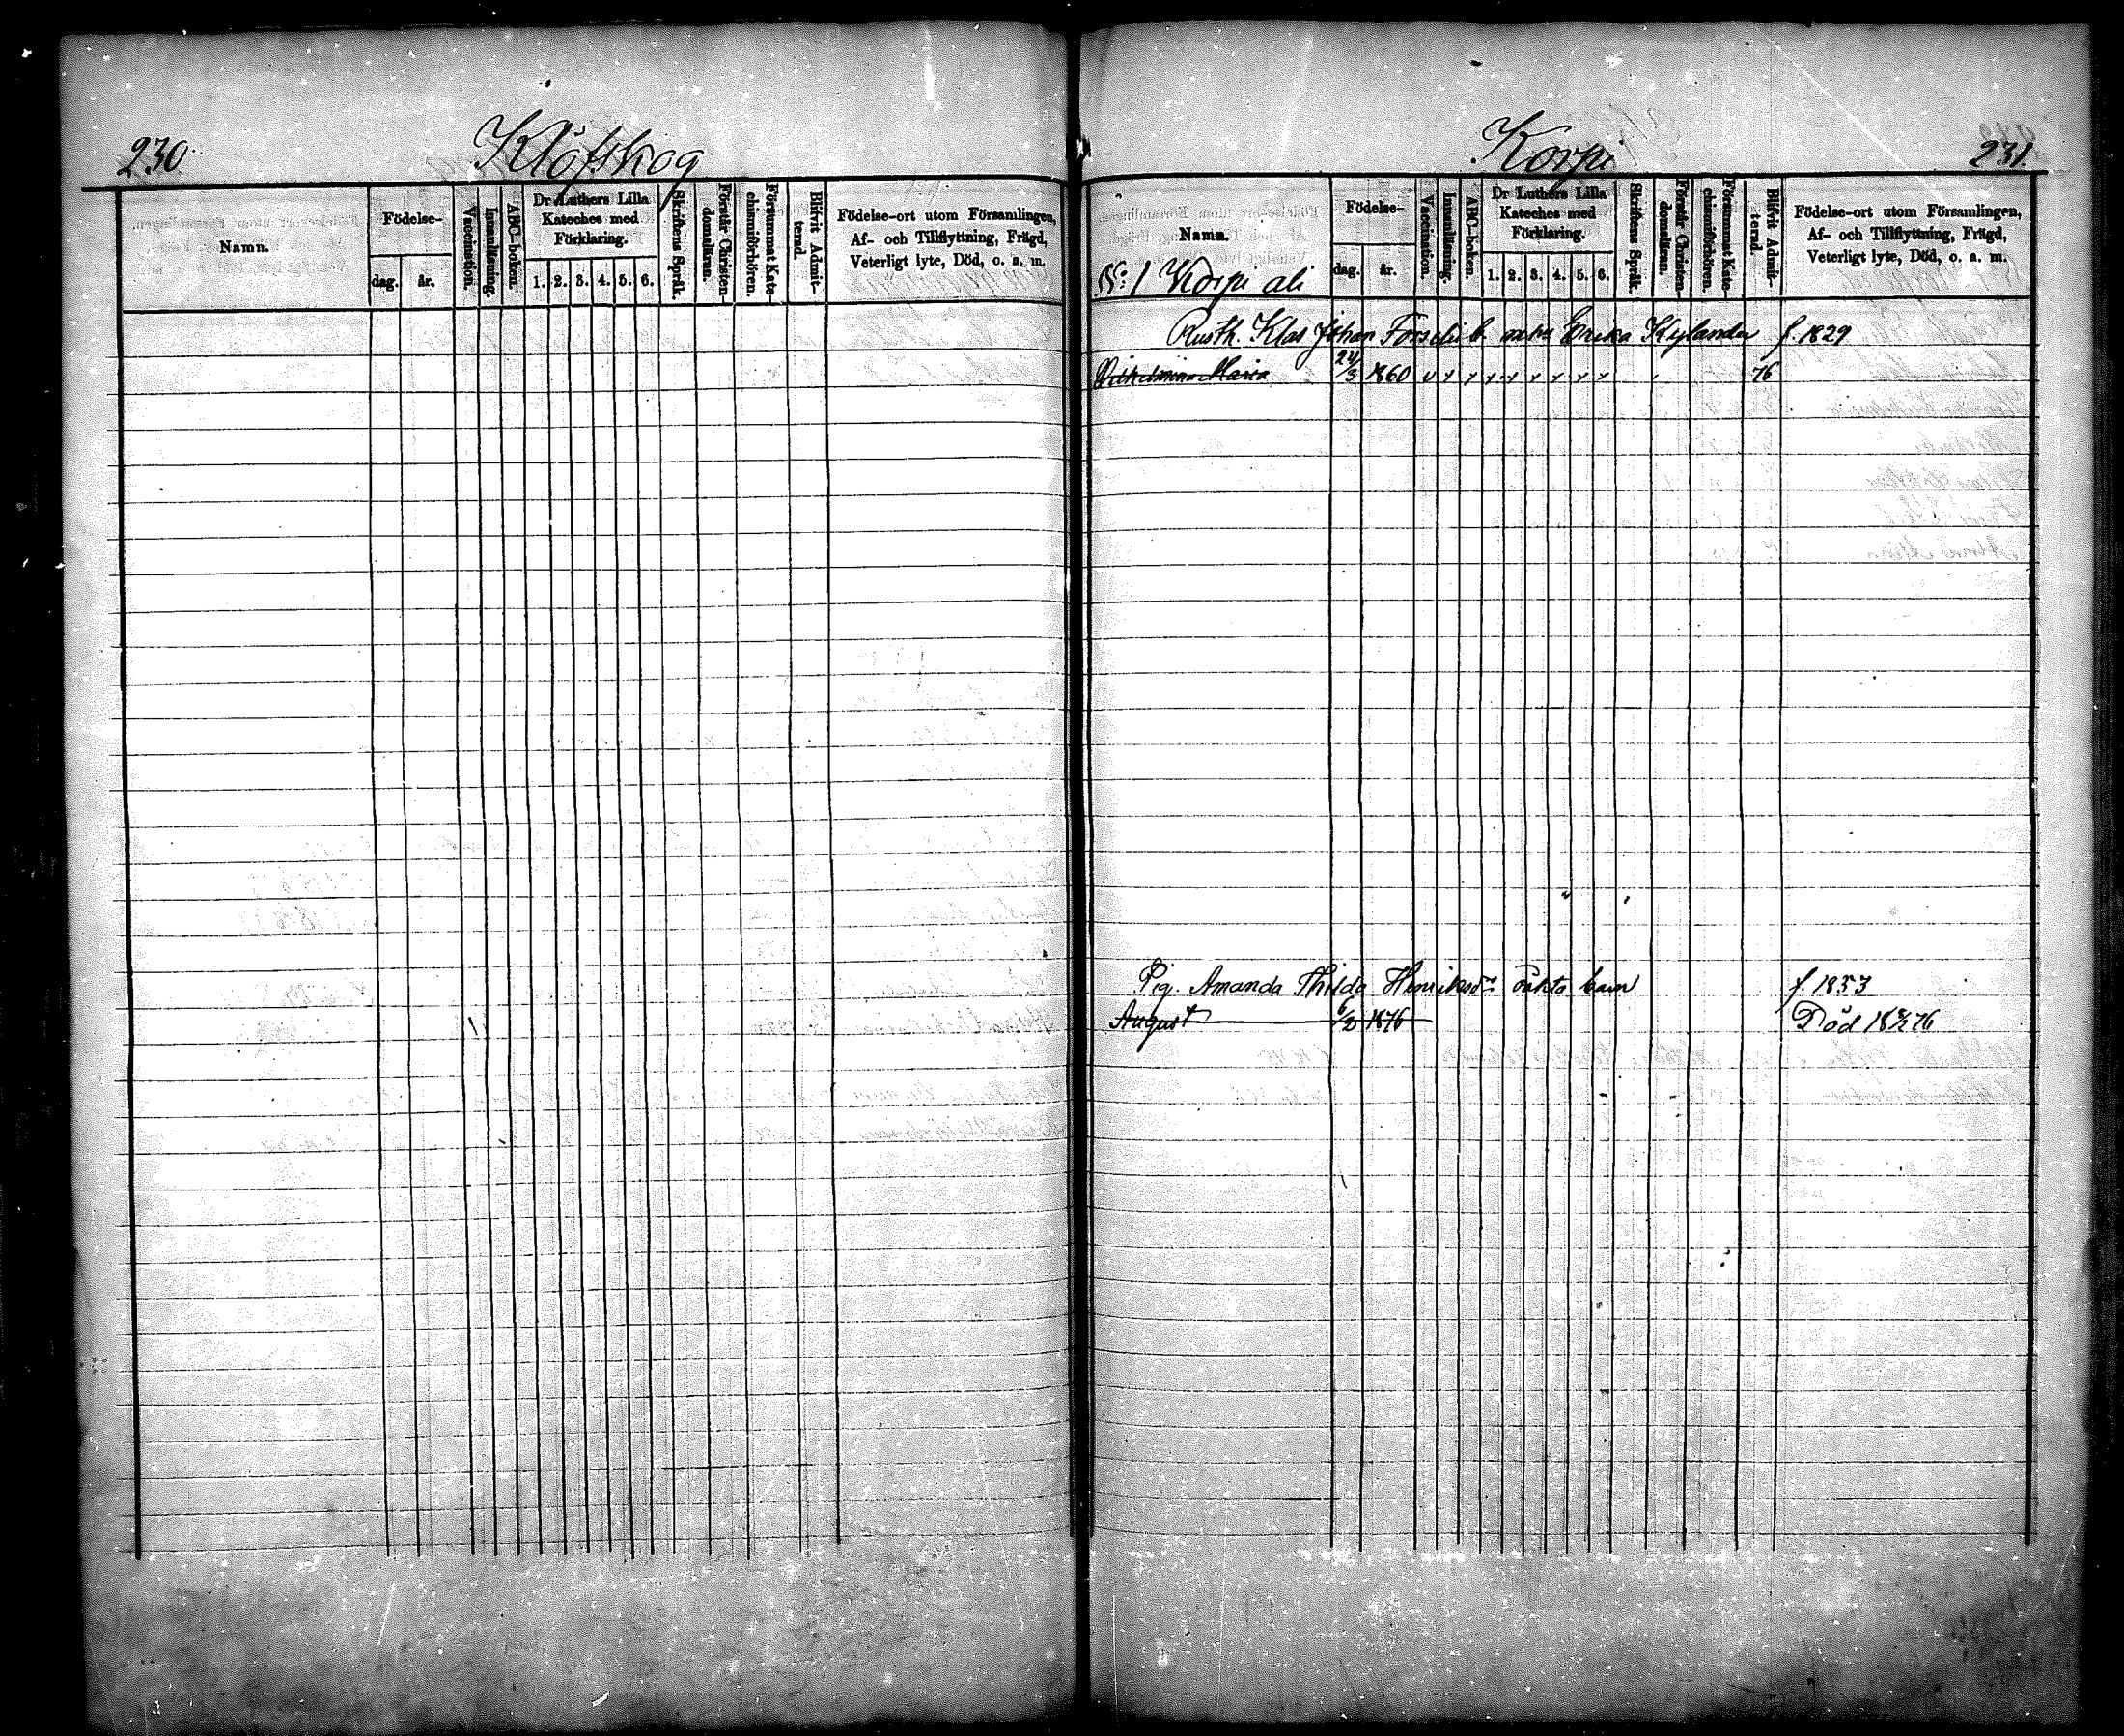 230
Klöfskog
Namn.
Födelse-
dag.
år.
Vaccination.
Innanläsning.
ABC-boken.
Dr Luthers Lilla
Kateches med
Förklaring.
1. 2. 3. 4. 5. 6.
Skriftens Språk.
Förstår Christen-
domsläran.
Försummat Kate-
chismiförhören.
Blifvit Admit-
terad.
Födelse-ort utom Församlingen,
Af- och Tillflyttning, Frägd,
Veterligt lyte, Död, o. s. m.
Korpi
231
Namn.
Födelse-
dag.
år.
Vaccination.
Innanläsning.
ABC-boken.
Dr Luthers Lilla
Kateches med
Förklaring.
1. 2. 3. 4. 5. 6.
Skriftens Språk.
Förstår Christen-
domsläran.
Försummat Kate-
chismiförhören.
Blifvit Admit-
terad.
Födelse-ort utom Församlingen,
Af- och Tillflyttning, Frägd,
Veterligt lyte, Död, o. s. m.
No: 1 Korpi ali
Rusth. Klas Johan Forselii b. Erika Kylander f. 1829
Vilhelmina Maria 24/3 1860 76
Pig. Amanda Thilda Henriksdr oäkta barn f. 1853
August 6/2 1876 Död 18 76